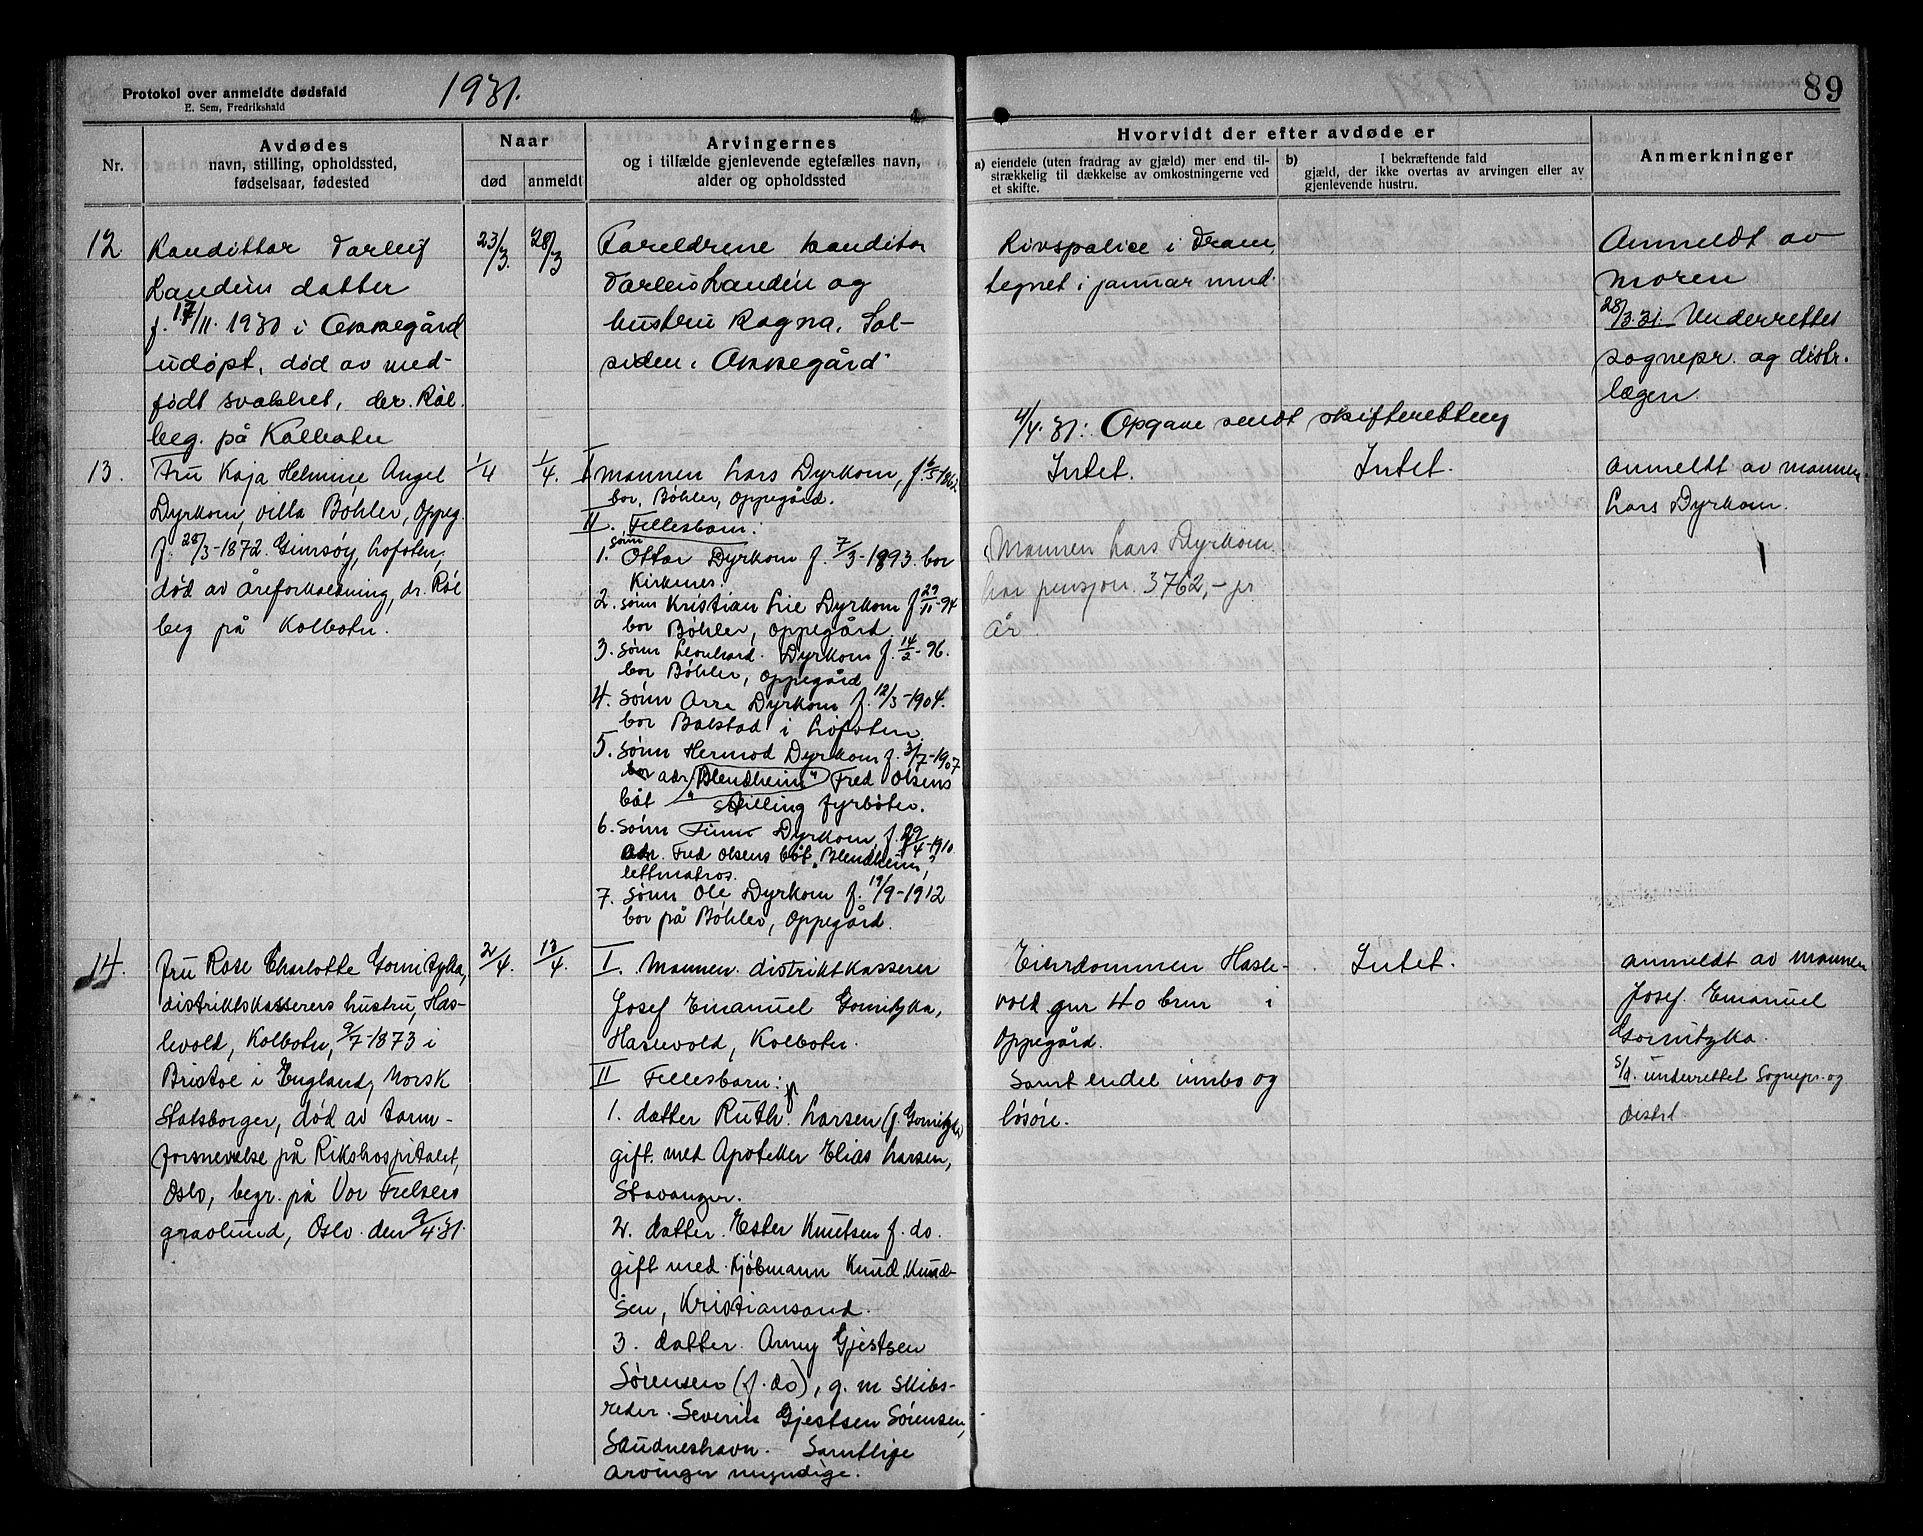 Protokol over anmeldte dødsfald
E. Sem, Fredrikshald
1931.
89
Nr.
Avdødes
navn, stilling, opholdssted,
fødselsaar, fødested
Naar
død
anmeldt
Arvingernes
og i tilfælde gjenlevende egtefælles navn,
alder og opholdssted
Hvorvidt der efter avdøde er
a) eiendele (uten fradrag av gjæld) mer end til-
strækkelig til dækkelse av omkostningerne ved
et skifte.
b) I bekræftende fald
gjæld, der ikke overtas av arvingen eller av
gjenlevende hustru.
Anmerkninger
12.
Torleif
Landéns datter
f. 17/11. 1930 i Oppegård
udøpt, død av med-
født svakhet, dr. Röl.
beg. på Kolbotn
23/3.
28/3
Foreldrene konditor
Torleif Landén og
hustru Ragna, Sol-
siden, Oppegård
Livspolice i Fram,
tegnet i januar mnd.
4/4. 31: Opgave sendt skifteretten
Anmeldt av
moren
28/3.31. Underrettet
sognepr. og distr.
lægen.
13.
Fru Kaja Helmine Angel
Dyrkorn, villa Bøhler, Oppeg.
f. 28/3-1872. Gimsøy, Lofoten,
død av åreforkalkning, dr. Röl
beg på Kolbotn.
1/4
1/4.
I mannen Lars Dyrkorn, f. 6/5-1862
bor, Bøhler, Oppegård.
II. Fellesbarn:
1. sønn Ottar Dyrkorn f. 7/3-1893. bor
Kirkenes.
2. sønn Kristian Lie Dyrkorn f. 29/11-94
bor Bøhler, Oppegård
3. sønn Leonhard Dyrkorn f. 14/2-96.
bor Bøhler, Oppegård
4. sønn Arne Dyrkorn f. 12/3-1904.
bor Balstad i Lofoten.
5. sønn Hermod Dyrkorn f. 3/7-1907
bor adr "Blendheim" Fred Olsens
båt stilling fyrbøter.
6. sønn Finn Dyrkorn, f. 29/4-1910
adr. Fred Olsens båt "Blendheim",
lettmatros.
7. sønn Ole Dyrkorn f. 19/9-1912
bor på Bøhler, Oppegård.
Intet.
Mannen Lars Dyrkorn
har pensjon. 3762,- pr
år
Intet.
anmeldt av mannen
Lars Dyrkorn.
14.
Fru Rose Charlotte Gornitzka,
distriktskasserers hustru, Has-
levold, Kolbotn, 9/7-1873 i
Bristol i England, Norsk
Statsborger, død av tarm-
forsnevelse på Rikshospitalet,
Oslo, begr. på Vor Frelsers
gravlund, Oslo den 9/4.31.
2/4.
13/4.
I. Mannen distriktkasserer
Josef Emanuel Gornitzka,
Haslevold, Kolbotn.
II Fellesbarn:
1. datter Ruth Larsen (f. Gornitzka)
gift med Apoteker Elias Larsen,
Stavanger.
2. datter Ester Knutsen f. do.
gift med Kjøbmann Knud Knud-
sen, Kristiansand.
3. datter Anny Gjestsen
Sørensen (f. do), g. m Skibs-
reder Severin Gjestsen Sørensen,
Skudneshavn. Samtlige
arvinger myndige.
Eiendommen Hasle-
vold gnr 40 bnr i
Oppegård.
samt endel innbo og
løsøre.
Intet.
anmeldt av mannen
Josef Emanuel
Gornitzka.
underrettet Sognepr. og
distrl